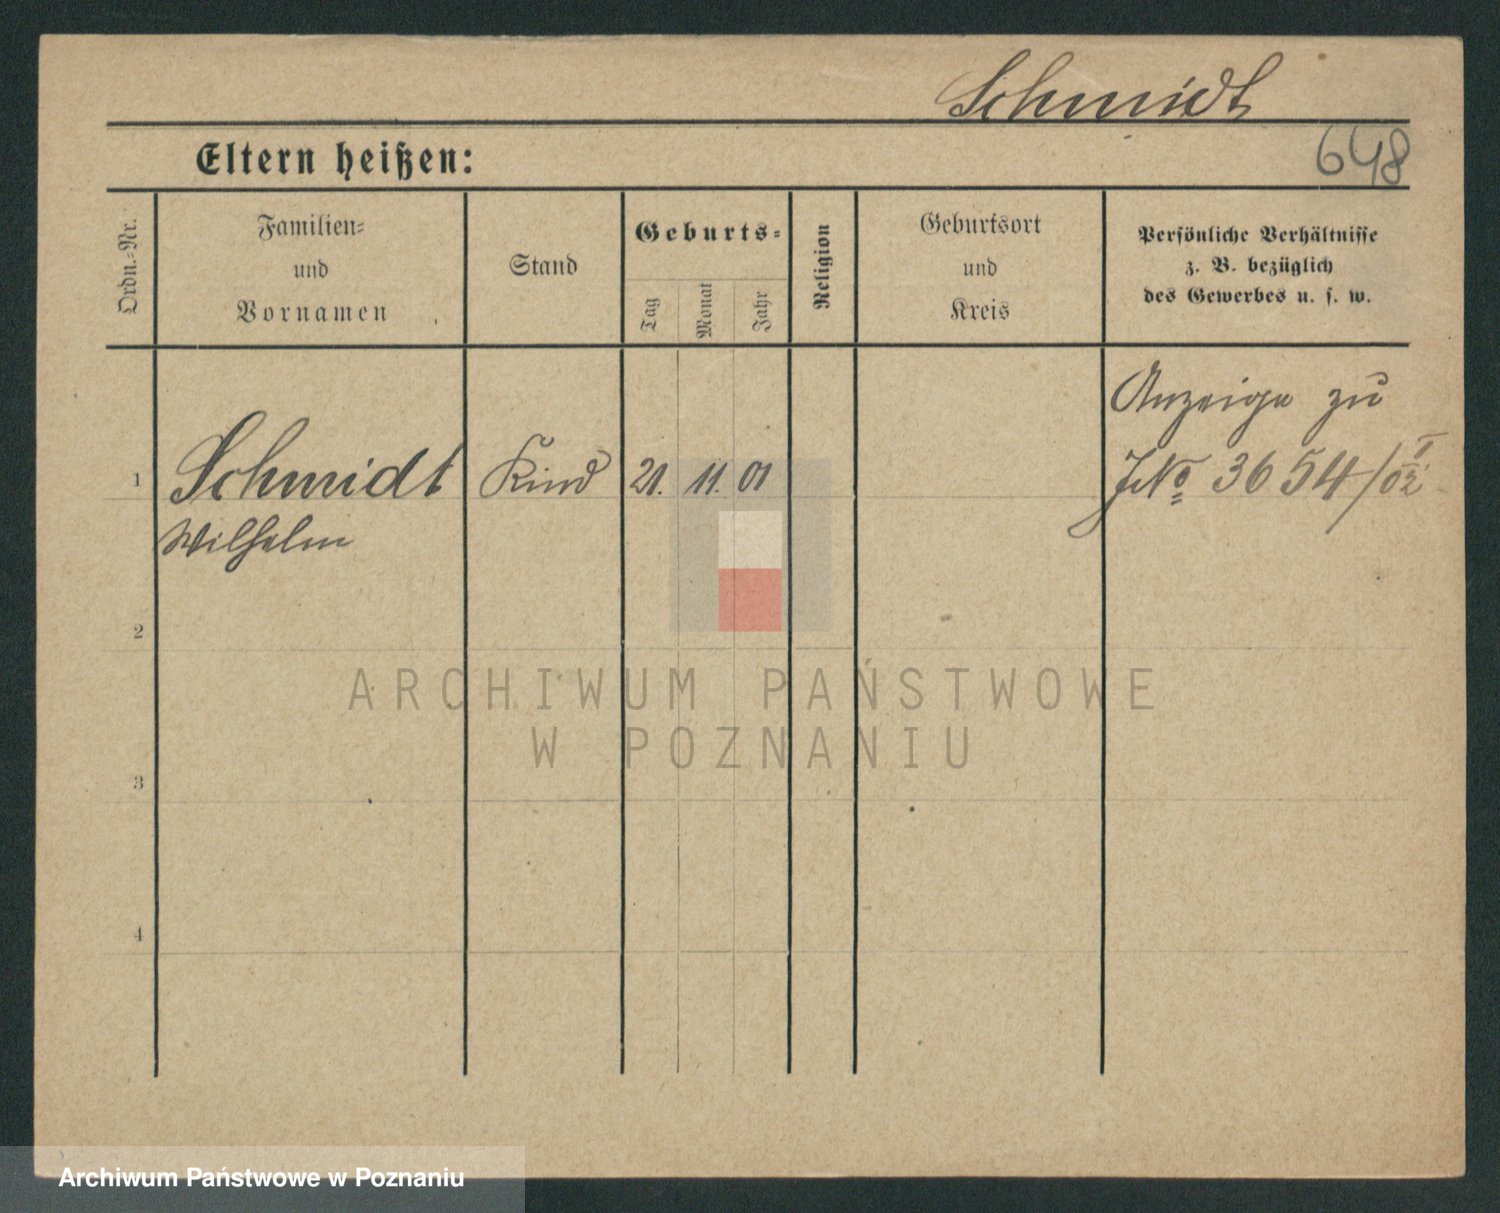 Schmidt
648
Eltern heißen:
Ordn.-Nr.
Familien-
und
Vornamen
Stand
Geburts-
Tag
Monat
Jahr
Religion
Geburtsort
und
Kreis
Persönliche Verhältnisse
z. B. bezüglich
des Gewerbes u. s. w.
Anzeige zu
1 Schmidt Kind 21. 11. 01 JNo 3654/02 I
Wilhelm
2
ARCHIWUM PAŃSTWOWE
W POZNANIU
3
4
Archiwum Państwowe w Poznaniu